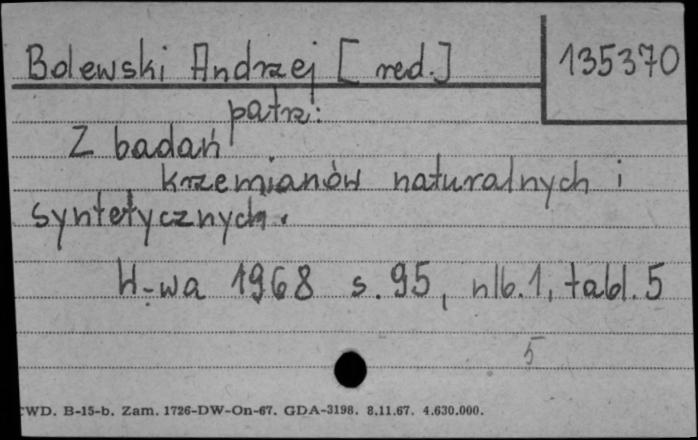 Bolewski Andrzej [red.] 135370
patrz:
Z badań
krzemianów naturalnych i
syntetycznych.
W-wa 1968 s. 95, nlb. 1, tabl. 5
5
CWD. B-15-b. Zam. 1726-DW-On-67. GDA-3198. 8.11.67. 4.630.000.